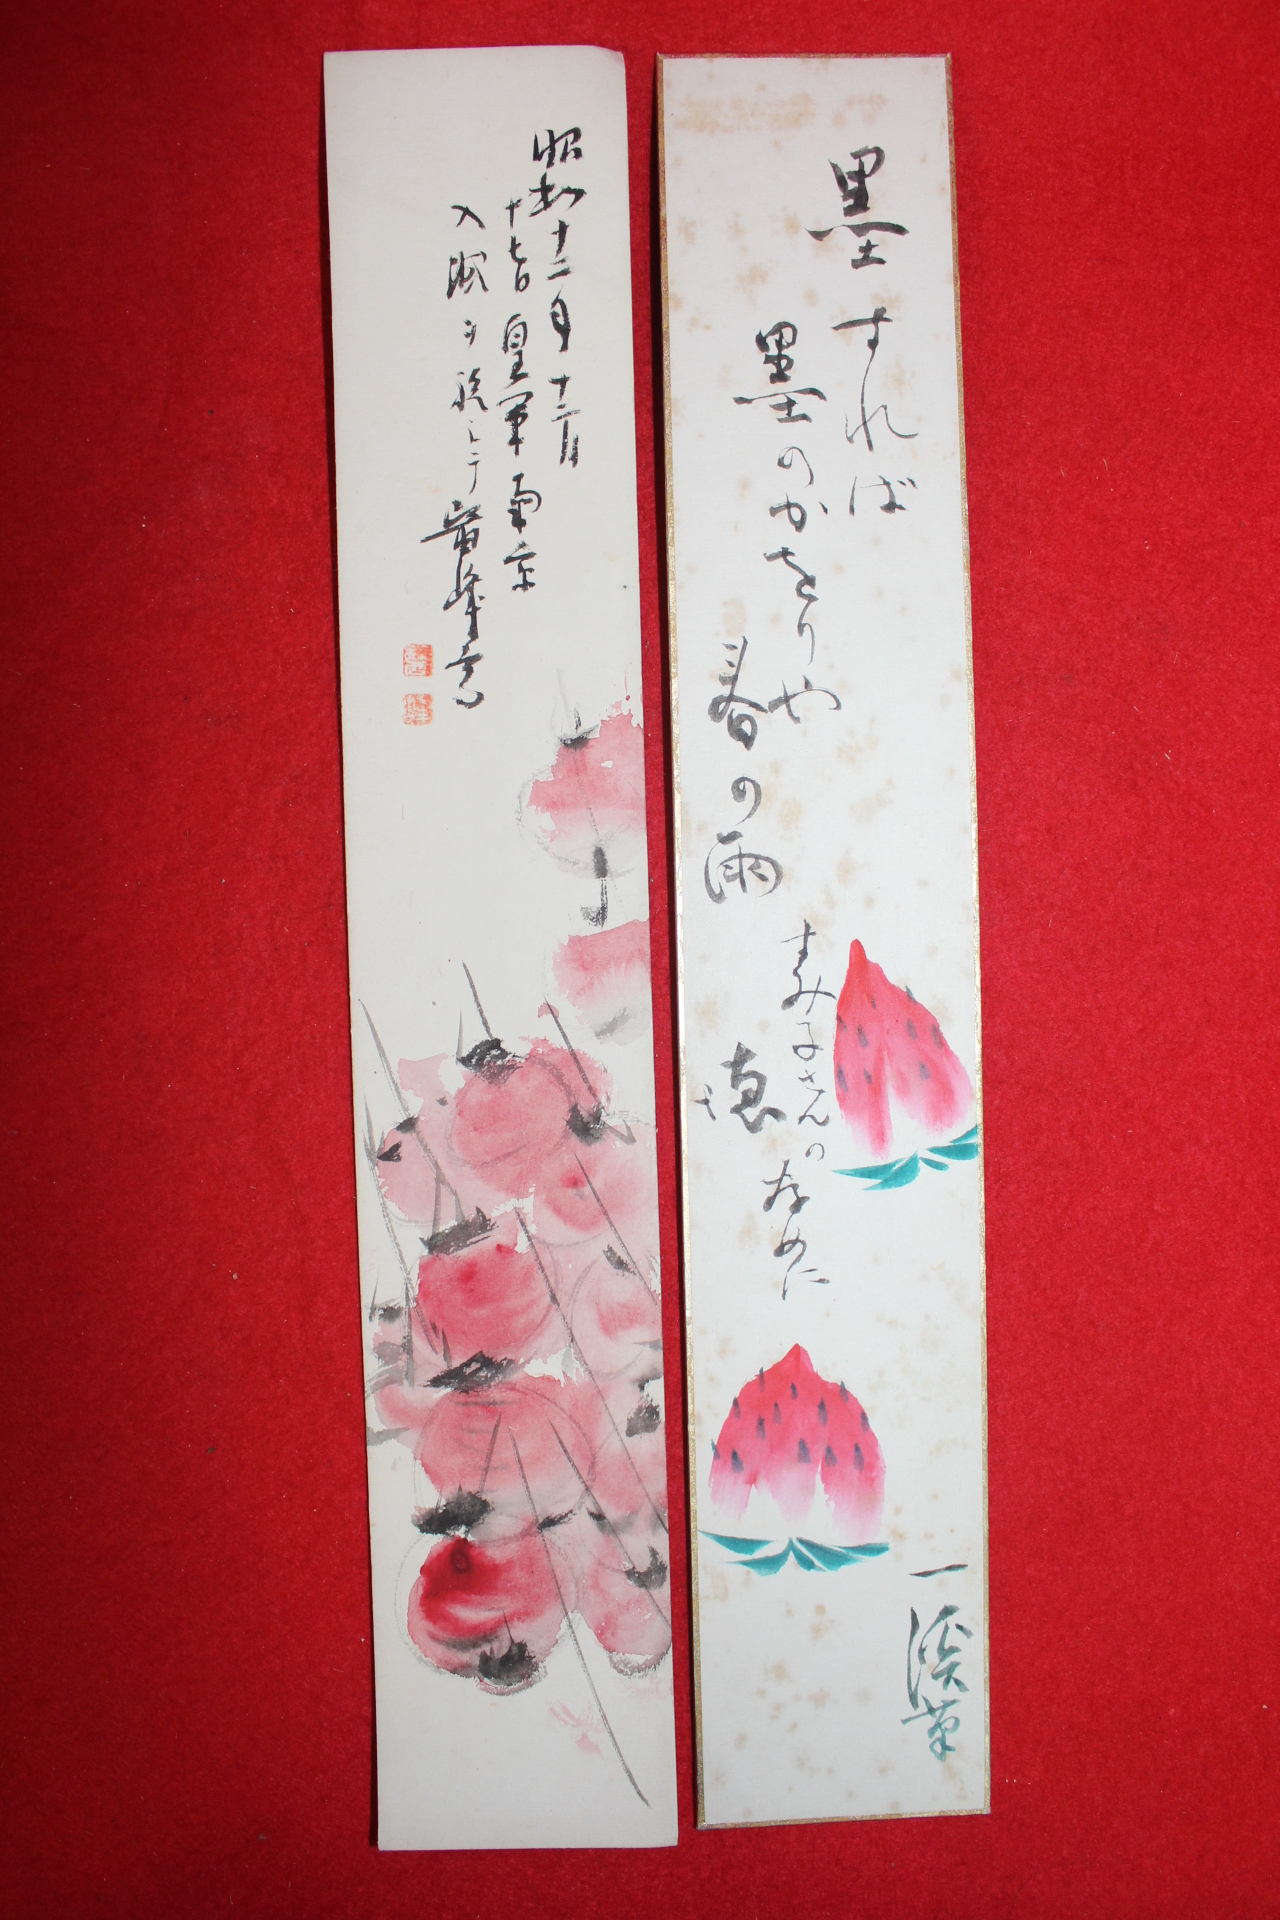 墨すれば
墨のかをりや
春の雨
すみ子さんのために
一渓草
昭和十二年十二月
十七日皇軍南京
入城ヲ祝シテ
峰